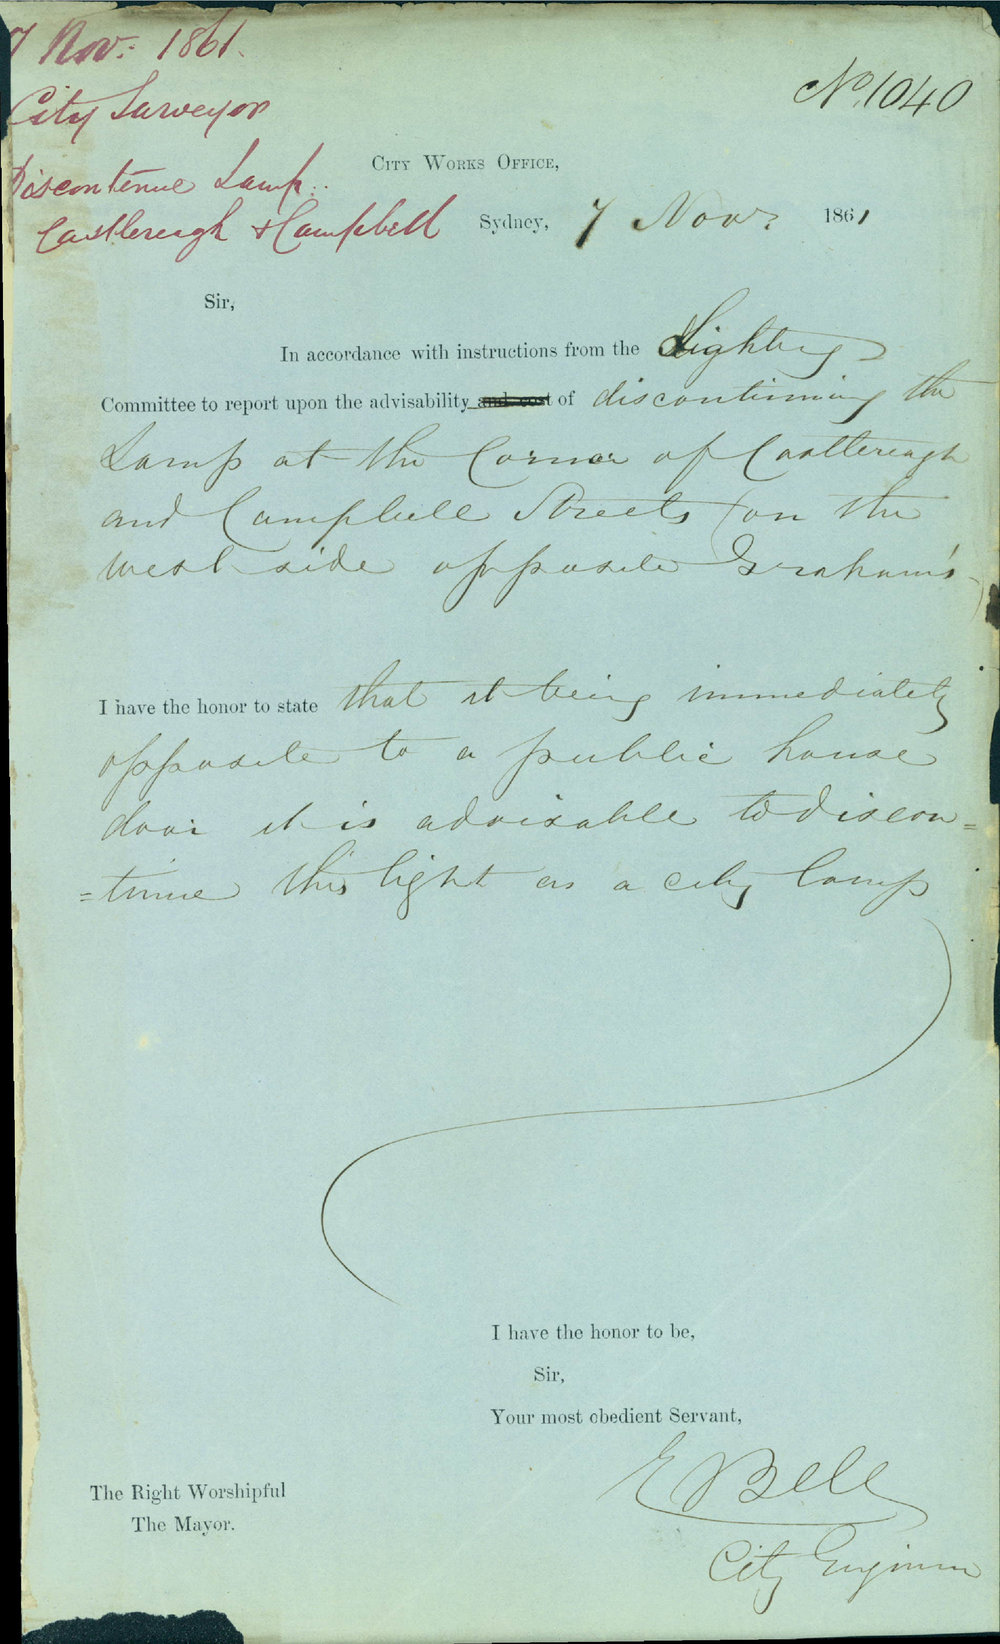 7 Nov: 1861.
City Surveyor
Discontinue Lamp.
Castlereagh & Campbell
No. 1040
City Works Office,
Sydney, 7 Novr. 1861
Sir,
In accordance with instructions from the Lighting
Committee to report upon the advisability and cost of discontinuing the
Lamp at the Corner of Castlereagh
and Campbell Streets (on the
west side opposite Graham's)
I have the honor to state that it being immediately
opposite to a public house
door it is advisable to discon=
=tinue this light as a city lamp
I have the honor to be,
Sir,
Your most obedient Servant,
E Bell
City Engineer
The Right Worshipful
The Mayor.